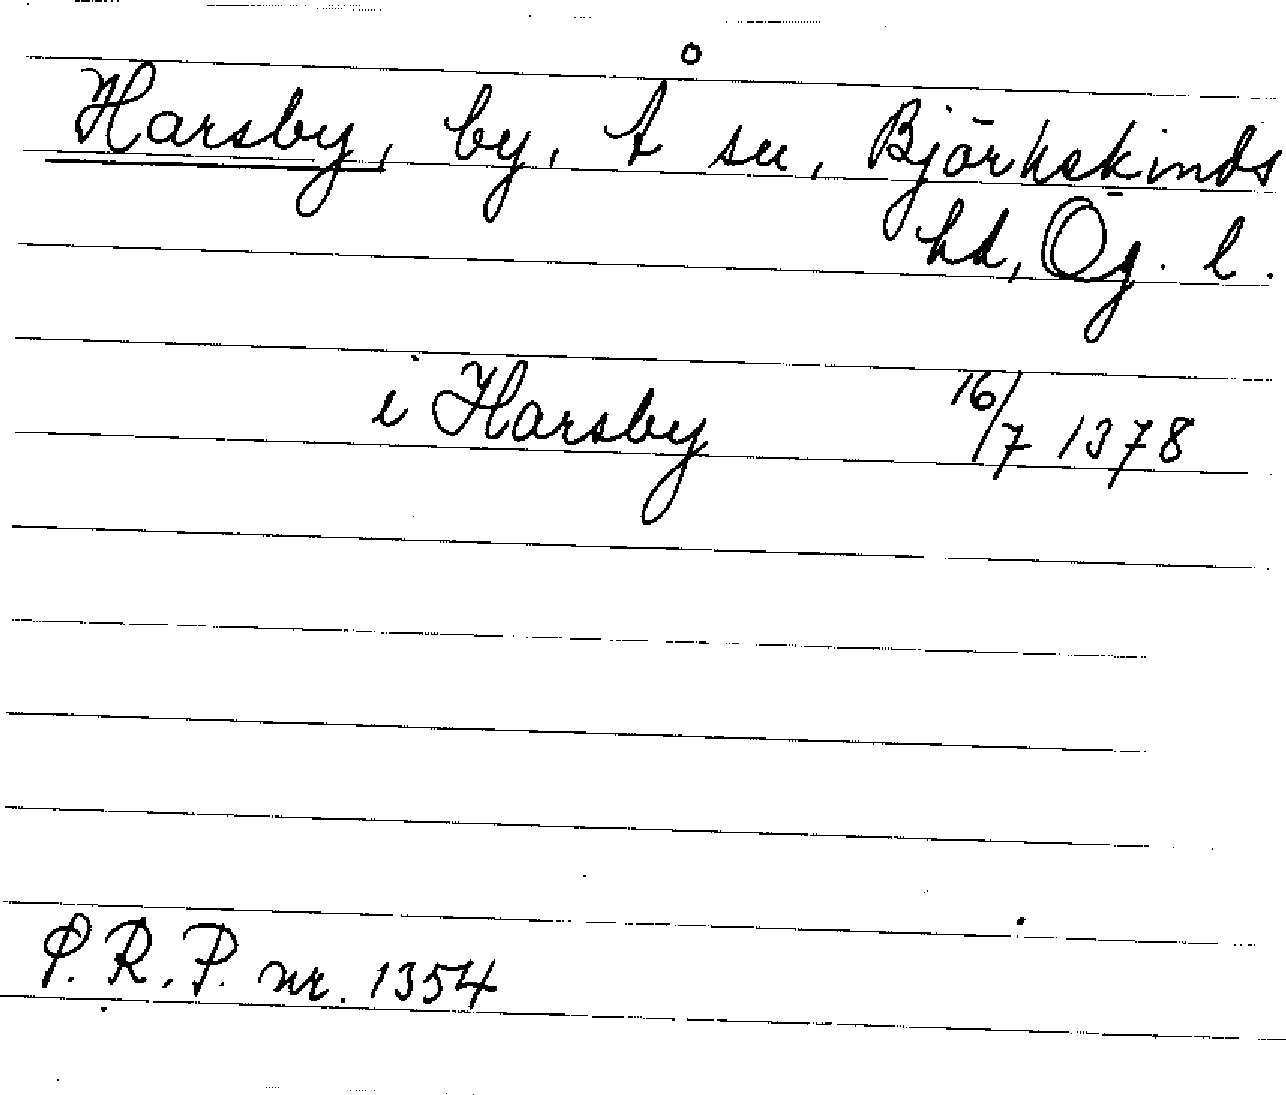 Harsby, by, Å sn, Björkekinds
hd, Ög. l.
i Harsby 16/7 1378
S. R. P. nr. 1354